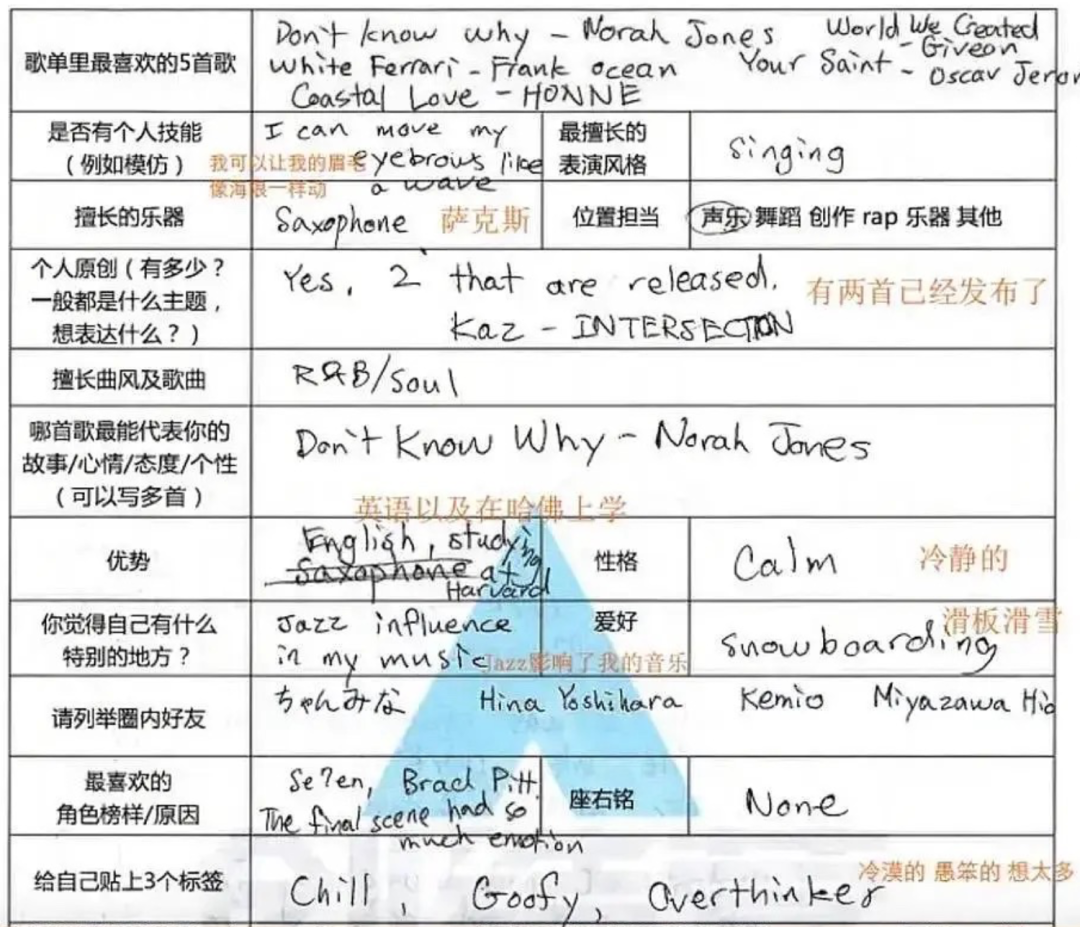 歌单里最喜欢的5首歌
Don't know why - Norah Jones World We Created - Giveon
White Ferrari - Frank ocean Your Saint - Oscar Jerom
Coastal Love - HONNE
是否有个人技能
(例如模仿)
I can move my
eyebrows like
a wave
我可以让我的眉毛
像海浪一样动
最擅长的
表演风格
Singing
擅长的乐器
Saxophone 萨克斯
位置担当
声乐 舞蹈 创作 rap 乐器 其他
个人原创(有多少?
一般都是什么主题,
想表达什么?)
Yes, 2 that are released. 有两首已经发布了
Kaz - INTERSECTION
擅长曲风及歌曲
R&B/Soul
哪首歌最能代表你的
故事/心情/态度/个性
(可以写多首)
Don't Know Why - Norah Jones
优势
英语以及在哈佛上学
English, studying
Saxophone at
Harvard
性格
Calm 冷静的
你觉得自己有什么
特别的地方?
Jazz influence
in my music
Jazz影响了我的音乐
爱好
滑板滑雪
snowboarding
请列举圈内好友
ちゃんみな Hina Yoshihara Kemio Miyazawa Hio
最喜欢的
角色榜样/原因
Se7en, Brad Pitt.
The final scene had so
much emotion
座右铭
None
给自己贴上3个标签
冷漠的 愚笨的 想太多
Chill, Goofy, Overthinker